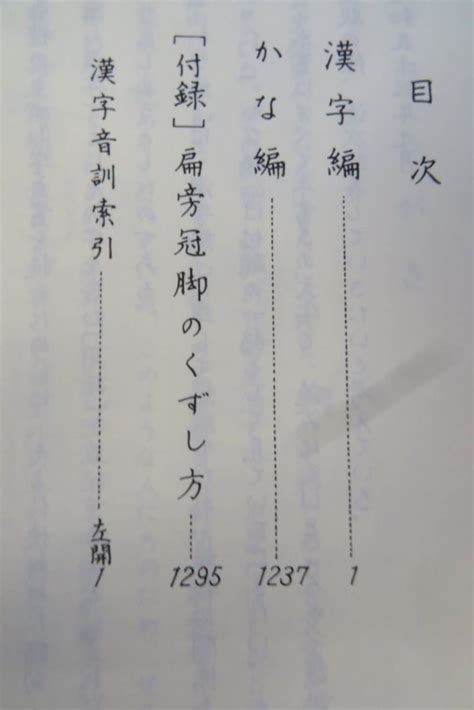 目次
漢字編……………1
かな編……………1237
［付録］扁旁冠脚のくずし方……1295
漢字音訓索引……………左開1